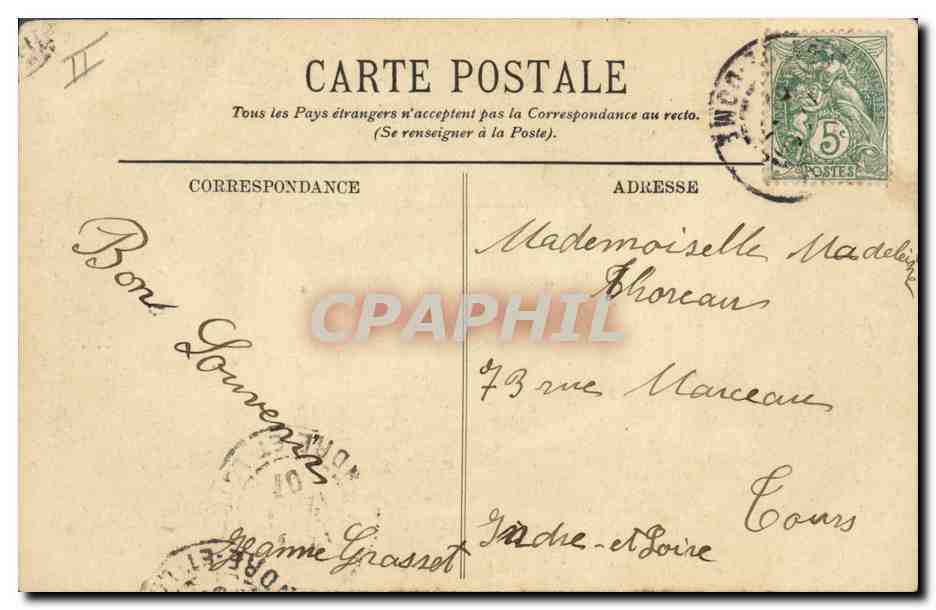 II
CARTE POSTALE
Tous les Pays étrangers n'acceptent pas la Correspondance au recto.
(Se renseigner à la Poste).
5c
POSTES
DOME
CORRESPONDANCE
ADRESSE
Bon
Souvenir
Jeanne Grasset
Mademoiselle Madeleine
Thoreau
73 rue Marceau
Tours
Indre-et-Loire
INDRE-ET-L
07
INDRE-ET-L
CPAPHIL